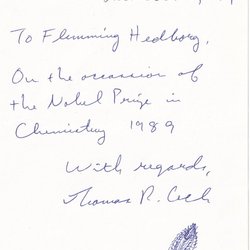 To Flemming Hedborg,
On the occasion of
the Nobel Prize in
Chemistry 1989
With regards,
Thomas R. Cech